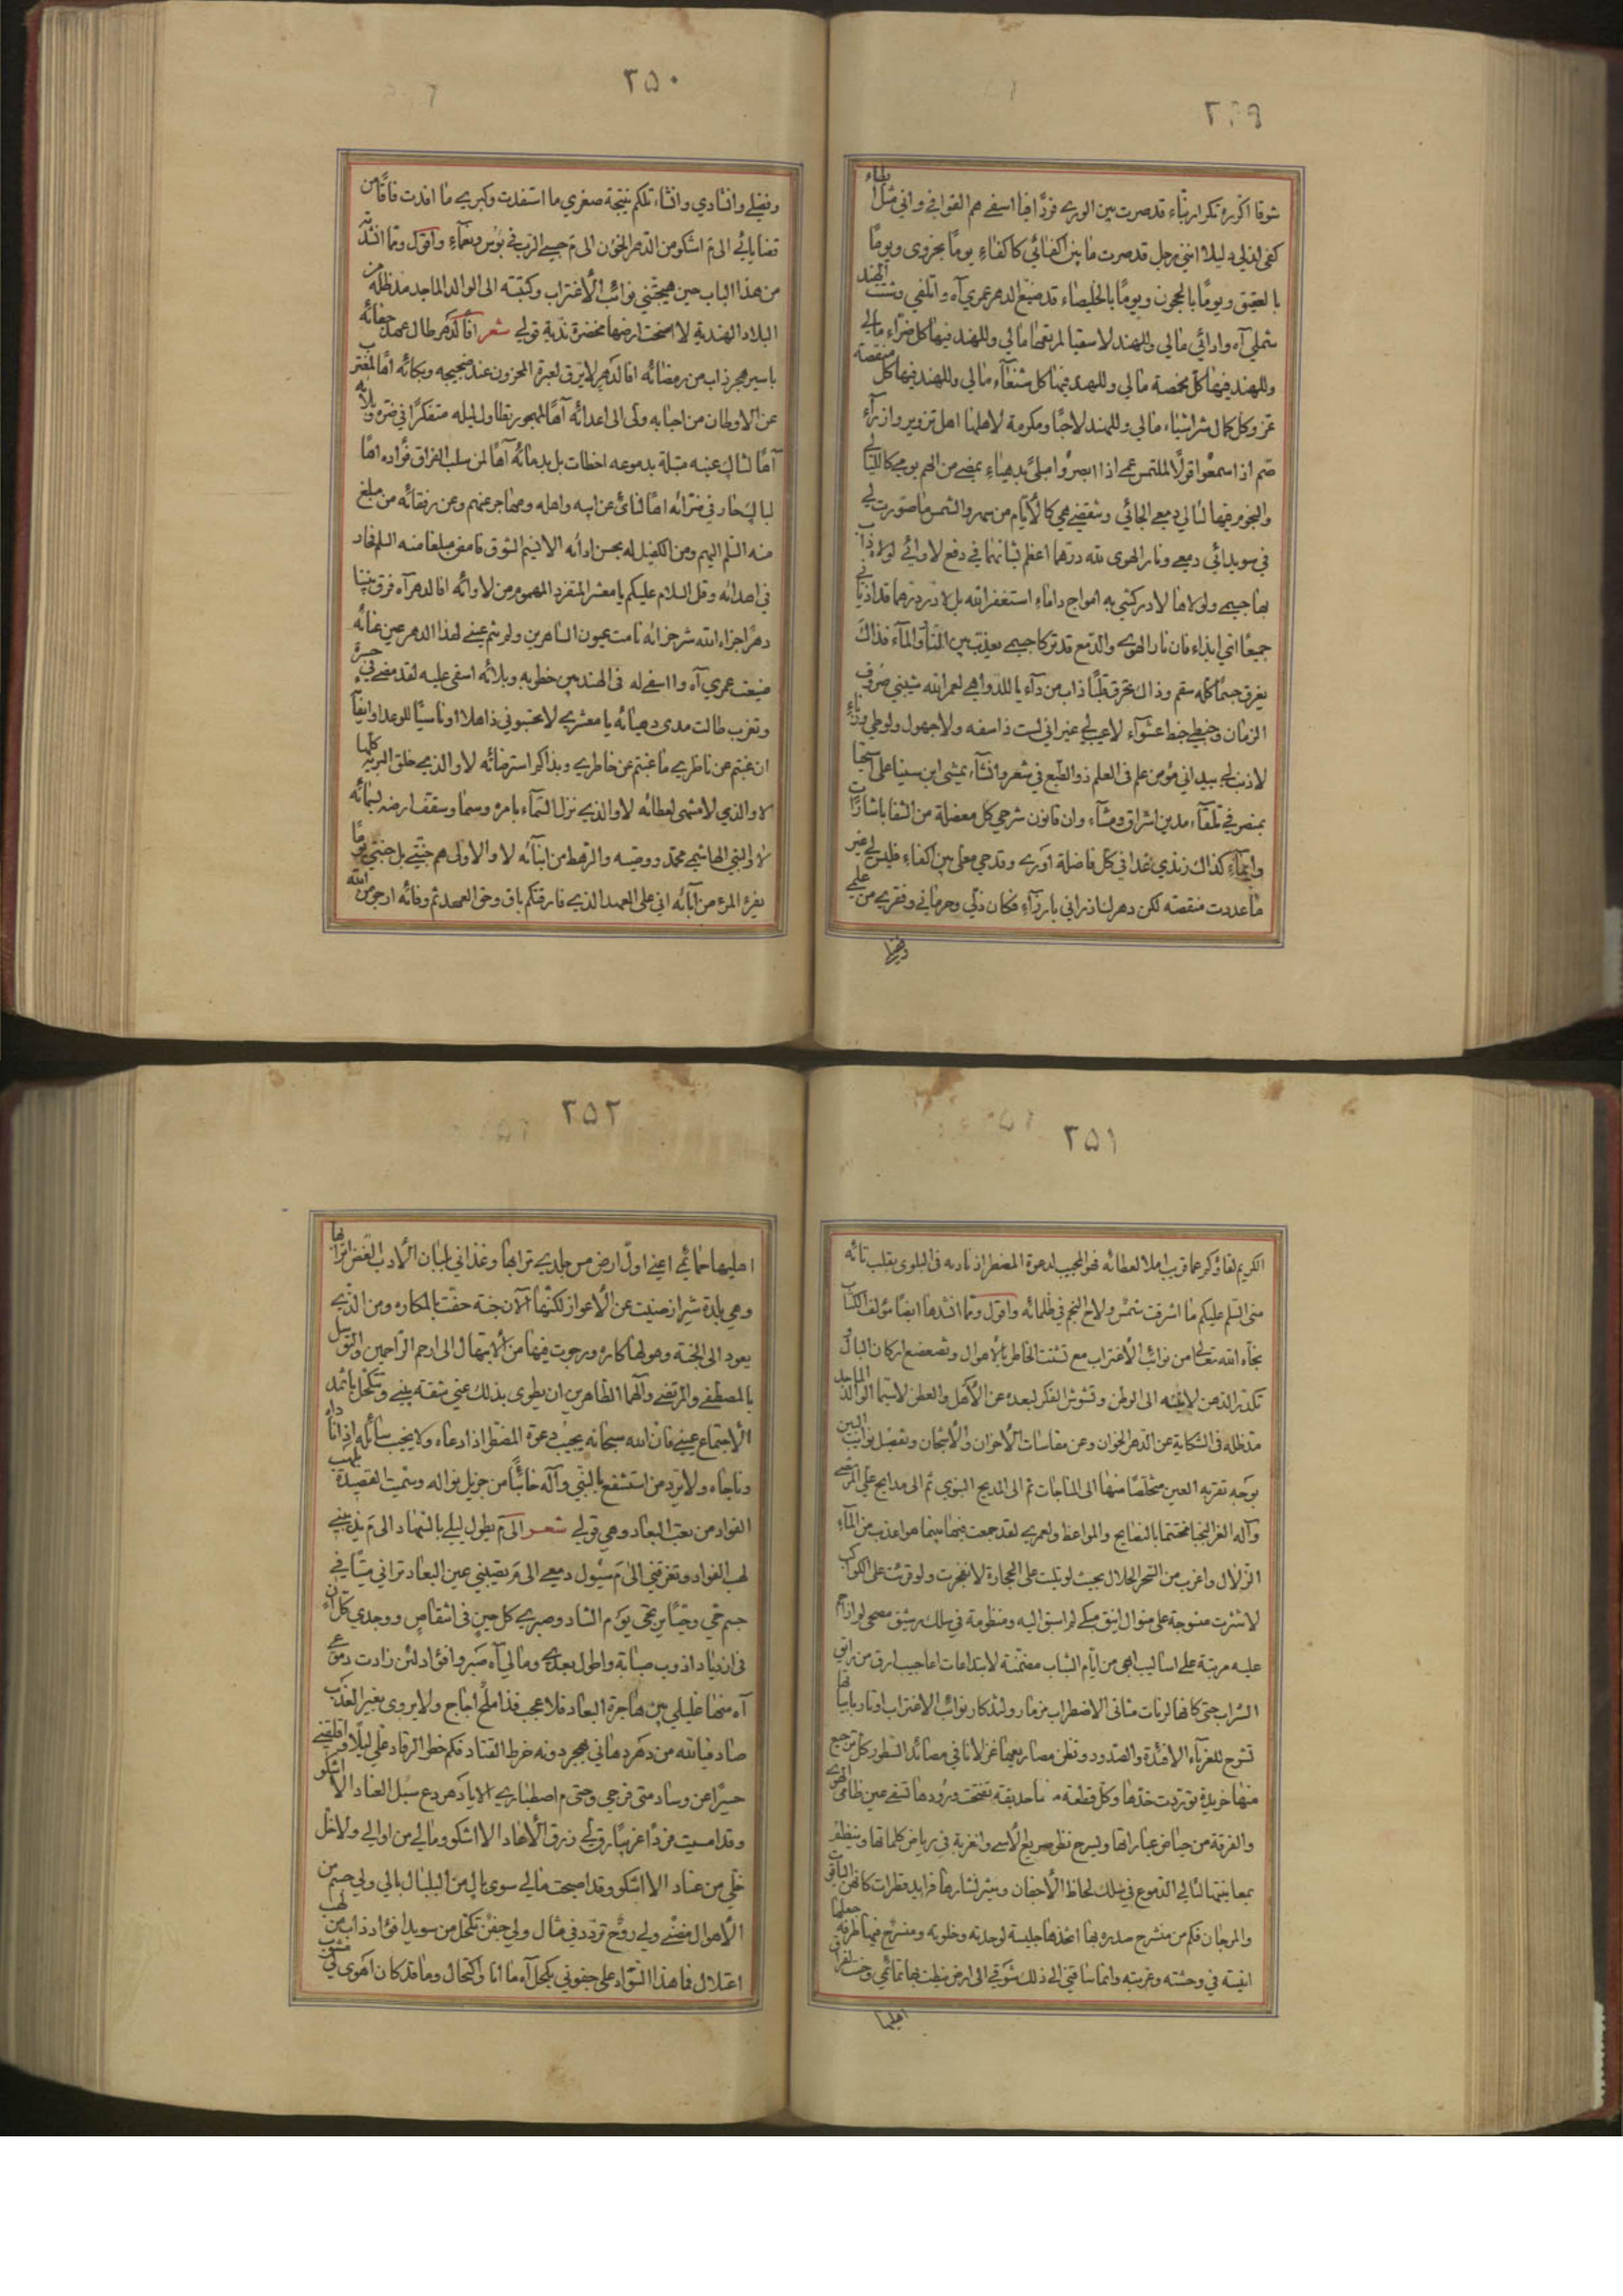 ٢٤٩
شوقا اكرره تكرار بتاء قد صرت بين الورى فردًا فيا اسفي هم القوافي واني مثل ايطاء
كفى لذلي دليلا انني رجل قد صرت ما بين اكفائي كاكفاء يومًا بحزوى ويومًا
بالعقيق ويومًا بالحجون ويومًا بالخليصاء قد ضيع الدهر عمري آه والهفي وشتت الهند
شملي آه وادائي مالي وللهند لا سقيا لمربعها مالي وللهند فيها كل ضراء مالي
وللهند فيها كل مخمصة مالي وللهند فيها كل شنعاء مالي وللهند فيها كل منقصة
عز وكل كمال شر اشياء مالي وللهند لا حبًا ومكرمة لاهلها اهل تزوير وازراء
صم اذا سمعوا قولًا لملتمس عمي اذا ابصروا مبلى بدهياء يمضي من الهم يومي كالليالي
والنجوم فيها لئالي دمعي الجائي وتنقضي هي كالايام من سهر والشمس ما صورت لي
في سويدائي دمعي ونار الهوى لله درهما اعظم بشانهما في دفع لاوائي لولاه ذاب
بها جسمي ولولاها لادركتني به امواج داماء استغفر الله بل لا در درهما قد اذيا ني
جميعًا اني ايذاء فان نار الهوى والدمع قد تركا جسمي يعذب بين النار والماء فذاك
يغرق جسمًا كله سقم وذاك يحرق قلبًا ذاب من داء يا للدواهي لعمر الله شيبني صروف
الزمان وخبطي خبط عشواء لا عيب لي غير اني لست ذا سفه ولا جهول ولوطي وزناء
لا ذنب لي بيد اني مؤمن علم في العلم ذو الطبع في شعر وانشاء يمشي ابن سينا على
بمنصر في تلقاء مدين اشراق ومشاء وان قانون شرحي كل معضلة من الشفا باشارات
وايماء كذاك زندي غدا في كل فاضلة اورى وقدحي معلى بين اكفاء فليس لي غير
ما عددت منقصة لكن دهر لنا ذراني بارزاء فكان ذلي وحرماني وفقري من علمي
وفضلي
٢٥٠
وفضلي وانشادي وانشاء تلكم نتيجة صغرى ما استفدت وكبرى ما افدت فاقا من
قضاياي الى م اشكو من الدهر الخؤن الى م حبسي الرب في بؤس ونعماء واقول ومما انشدته
من هذا الباب حين هيجتني نوائب الاغتراب وكتبته الى الوالد الماجد مد ظله من
البلاد الهندية لا اصبحت ارضها مخضرة ندية قولي شعر افا لدهر طال عهد جفائه
باسير هجر ذاب من رمضائه افا لدهر لا يرق لعبرة المحزون عند ضجيجه وبكائه آها لمغترب
عن الاوطان من احبابه ولى الى اعدائه آها لمهجور تطاول ليله متفكرًا في ضره وبلائه
آها لشاك عينه مبتلة بدموعه اخطات بل بدمائه آها لمن سلب الفراق فؤاده آها
لباك حار في ضرائه آها لنائ عن ابيه واهله ومهاجر عنهم وعن رفقائه من مبلغ
منه السلم اليهم ومن الكفيل له بحسن ادائه الا نيم الشوق فامض مبلغا منه السلم فحاد
في اهدائه وقل السلام عليكم يا معشر المتفرد المهموم من لاوائه افا لدهر آه فرق بيننا
دهرًا جزاء الله شر جزائه نامت عيون الساهرين ولم تنم عيني لهذا الدهر عين عنائه
ضيعت عمري آه وا اسفي له في الهند بين خطوبه وبلائه اسفي عليه لقد مضى في حسرة
وتغرب طالت مدى دهيائه يا معشري لا تحسبوني ذاهلا او ناسيًا للوعد او ايفائه
ان غبتم عن ناظري ما غبتم عن خاطري وبذاكر استرضائه لا والذي خلق البرية كلها
لا والذي لا منتهى لعطائه لا والذي نزل السماء بامره وسما وسقف ارضه بسمائه
لا والنبي الهاشمي محمد ووصيه والرهط من ابنائه لا والاولى هم جنتي بل جنتي يومًا
يفر المرء من آبائه اني على العهد الذي فارقتكم باق وحق العهد ثم وفائه ارجو من الله
٢٥١
الكريم لقاؤكم عما قريب املا لعطائه فهو المجيب لدعوة المضطر اذ ناداه في البلوى بقلب تائه
مني السلم عليكم ما اشرقت شمس ولاح النجم في ظلمائه واقول ومما انشدها ايضًا مؤلف الكتاب
نجاه الله تعالى من نوائب الاغتراب مع تشتت الخاطر بالاهوال وتضعضع اركان البال و
تكدر الذهن لانيته الى الوطن وتشوش الفكر لبعده عن الاهل والعطن لا سيما الوالد الماجد
مد ظله في الشكاية عن الدهر الخوان وعن مقاسات الاحزان والاشجان وتفصيل نوائب البين
بوجه تقر به العين متخلصًا منها الى المناجات ثم الى المديح النبوي ثم الى مدايح علي المرتضى
وآله الغر النجبا مختتمًا بالنصايح والمواعظ ولعمري لقد جمعت فيها بينما هو اعذب من الماء
الزلال واغرب من السحر الحلال بحيث لو تليت على الحجارة لانفجرت ولو قرئت على الكواكب
لانتثرت منسوجة على منوال انيق مسكي لم اسبق اليه ومنظومة في سلك رشيق مصحى لم ازاحم
عليه مرتبة على اساليب ابهى من ايام الشباب متضمنة لابتداعات اعاجيب ارق من رايق
الشراب حتى كانها لرنات مثاني الاضطراب مزمار ولتذكار نوائب الاغتراب اوتار بابياتها
تشرح للغرباء الافئدة والصدور وتظن مصاريعها غزلانا في مصائد السطور كل ترجيع
منها خريدة توردت خدها وكل قطعة منها حديقة تفتحت ورودها تشفي عين ظامئ الهوى
والفرقة من حياض عباراتها ويسرح نظر صريع الاسى والغربة في رياض كلماتها وينظر
بمعاينتها لئالي الدموع في سلك لحاظ الاجفان وينثر نثارها فرايد قطرات كانهن الياقوت
والمرجان فكم من منشرح صدره بها اتخذها جليسة لوحدته وخلوته ومنسرح فيها طرفه جعلها
انيسة في وحشته وغربته وانما ساقني الى ذلك شوقي الى ارض نيطت بها تمائمي
اهليها
٢٥٢
اهليها حمائمي اعني اول ارض مس جلدي ترابها وغذاني بلبان الادب الغض اترابها
وهي بلدة شيراز صينت عن الاعواز لكنها الآن جنة حفت بالمكاره ومن الذي
يعود الى الجنة وهو لها كاره ورجوت فيها من الابتهال الى ارحم الراحمين والتوسل
بالمصطفى والمرتضى وآلهما الطاهرين ان يطوى بذلك عني شقة بيني وتكتحل باثمد
الاجتماع عيني فان الله سبحانه يجيب دعوة المضطر اذا دعاه ولا يخيب سائله اذا ناداه
وناجاه ولا يرد من استشفع بالنبي وآله خائبًا من جزيل نواله وسميت القصيدة بلهب
الفواد من تعب البعاد وهي قولي شعر الى م يطول ليلي بالسهاد الى م يذيبني
لهب الفواد وتغرقني الى م سيول دمعي الى م تصيبني عين البعاد تراني ميتًا في
جسم حي وحيًا يرتجى يوم التناد وصبري كل حين في انتقاص ووجدي كل آن
في ازدياد اذوب صبابة واطول بعدي ومالي آه صبر وافؤاد لئن زادت دموعي
آه منها غليلي بين هاجرة البعاد فلا عجب فذا ملح اجاج ولا يروى بغير العذب
صاد فيا لله من دهر دهاني بهجر دونه خرط القتاد فكم خطر الرقاد علي ليلًا واقلقني
حسيرًا عن وساد متى فرجي وحتى م اصطباري الا يا دهر دع سبل العناد الا اشكو
وقد امسيت فردًا غريبًا رق لي زرق الاعاد الا اشكو ومالي من اوالي ولا خل
خلي من عناد الا اشكو وقد اصبحت مالي سوى بال من البلبال بالي ولي جسم من
الاهوال مضنى ولي روح تردد في مثال ولي جفن تكحل من سويدا فؤاد ذاب من لهب
اعتلال فما هذا السواد على جفوني بكحل آه ما انا واكتحال وما قد كان اهوى لي